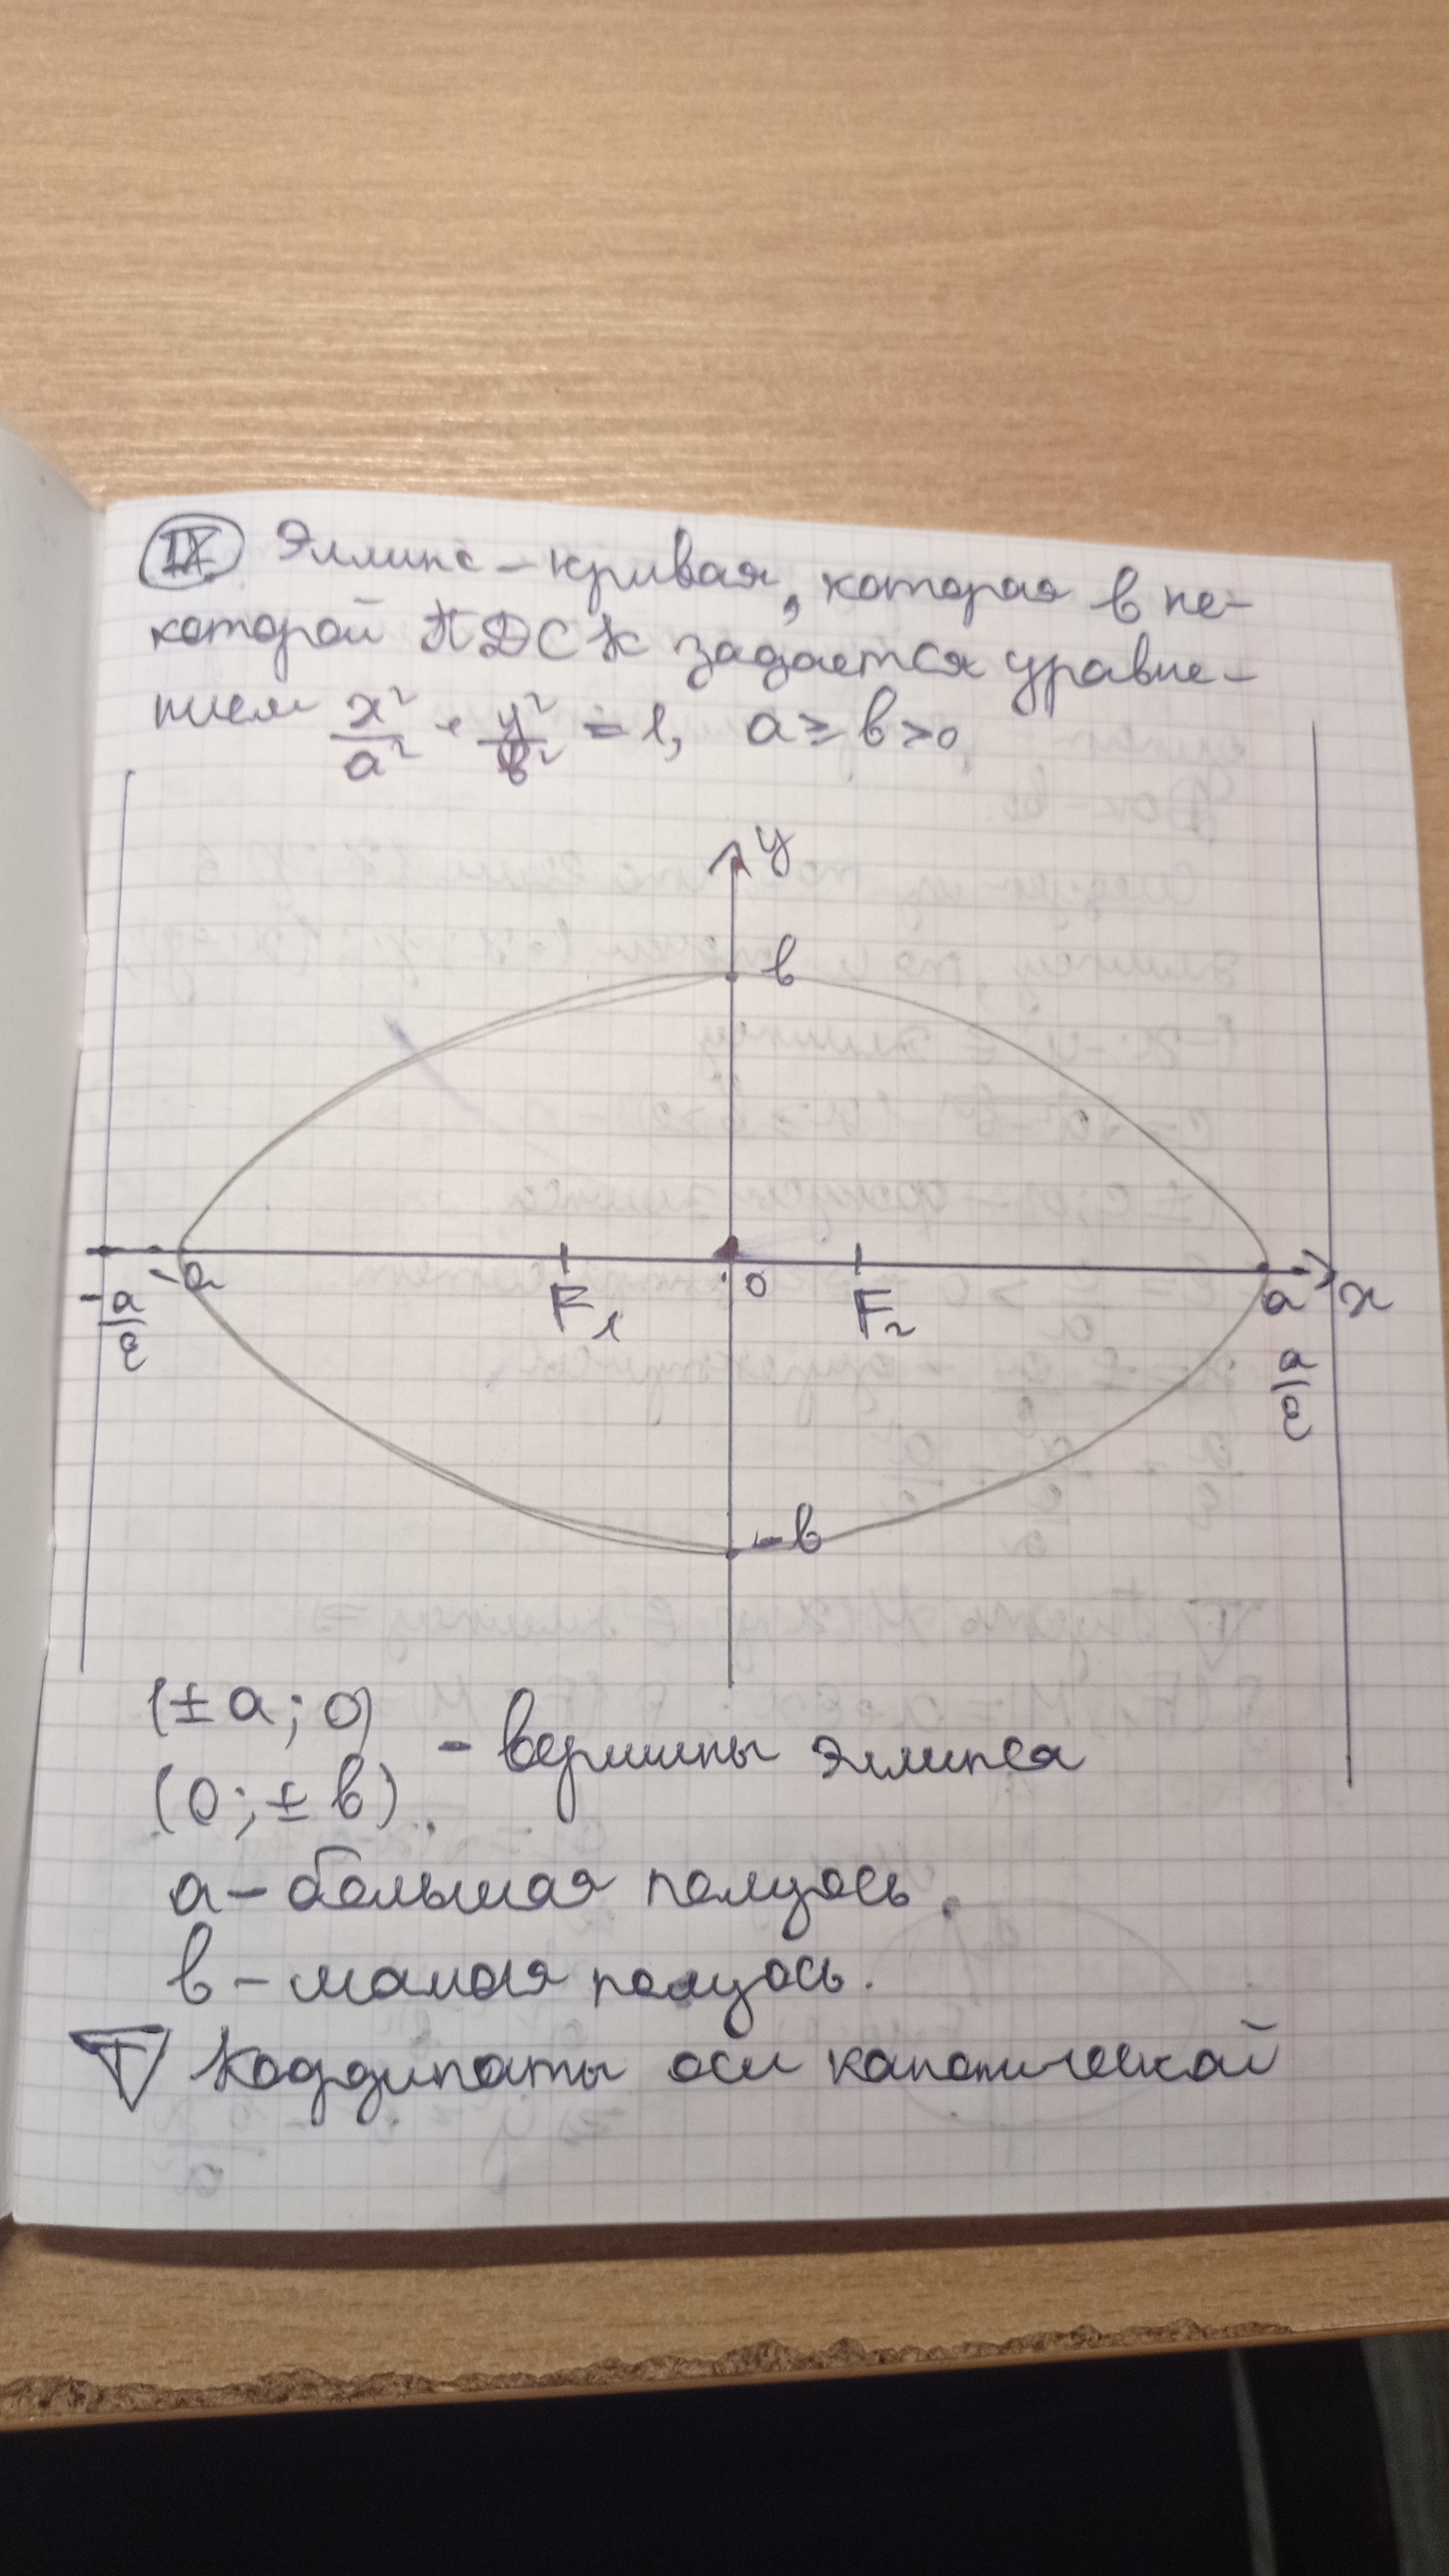 IX Эллипс – кривая, которая в не-
которой ПДСК задается уравне-
нием x²/a² + y²/b² = 1, a ≥ b > 0
y
b
-a
F₁
0
F₂
a
x
-a/ε
a/ε
-b
(±a; 0)
(0; ±b)
- вершины эллипса
a – большая полуось.
b – малая полуось.
T Координаты оси канонической